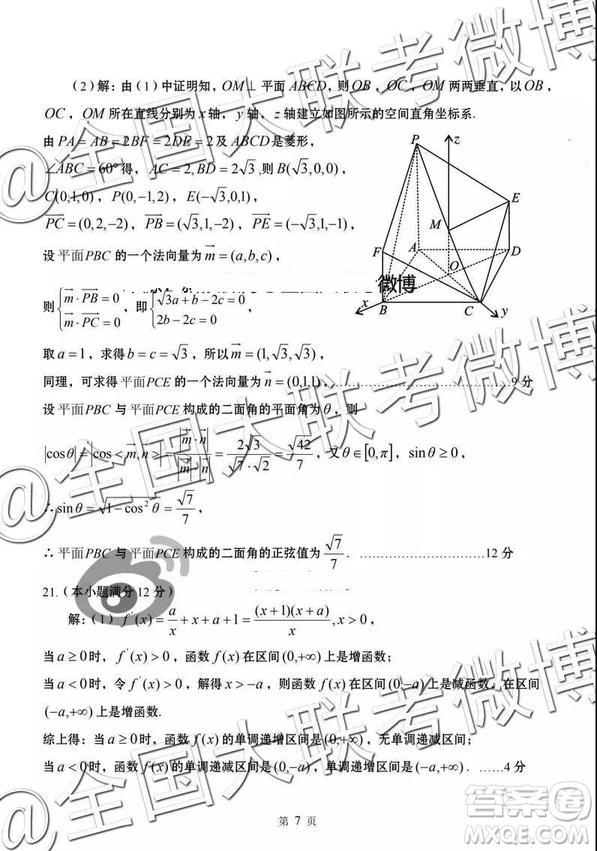 (2)解：由(1)中证明知，OM⊥平面ABCD，则OB，OC，OM两两垂直，以OB，
OC，OM所在直线分别为x轴，y轴，z轴建立如图所示的空间直角坐标系.
由PA=AB=2BF=2DE=2及ABCD是菱形，
∠ABC=60°得，AC=2,BD=2√3.则B(√3,0,0)，
C(0,1,0)，P(0,-1,2)，E(-√3,0,1)，
PC=(0,2,-2)，PB=(√3,1,-2)，PE=(-√3,1,-1)，
设平面PBC的一个法向量为m=(a,b,c)，
则{m·PB=0 m·PC=0，即{√3a+b-2c=0 2b-2c=0，
取a=1，求得b=c=√3，所以m=(1,√3,√3)，
同理，可求得平面PCE的一个法向量为n=(0,1,1)，……………9分
设平面PBC与平面PCE构成的二面角的平面角为θ，则
|cosθ|=cos<m,n>=m·n/|m|·|n|=2√3/√7·√2=√42/7，又θ∈[0,π]，sinθ≥0，
∴sinθ=√1-cos²θ=√7/7，
∴平面PBC与平面PCE构成的二面角的正弦值为√7/7．……………12分
P
z
E
M
F
A
D
O
x
B
C
y
微博
21.(本小题满分12分)
解：(1)f'(x)=a/x+x+a+1=(x+1)(x+a)/x,x>0，
当a≥0时，f'(x)>0，函数f(x)在区间(0,+∞)上是增函数；
当a<0时，令f'(x)>0，解得x>-a，则函数f(x)在区间(0,-a)上是减函数，在区间
(-a,+∞)上是增函数.
综上得：当a≥0时，函数f(x)的单调递增区间是(0,+∞)，无单调递减区间；
当a<0时，函数f(x)的单调递减区间是(0,-a)，单调递增区间是(-a,+∞)．……4分
第 7 页
@全国大联考微博
@全国大联考微博
@全国大联考微博
答案卷
MXQE.COM